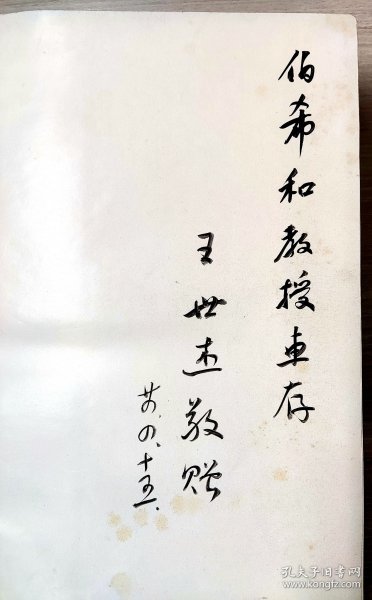 伯希和教授惠存
王世杰敬贈
廿四、四、十五、
孔夫子旧书网
www.kongfz.com